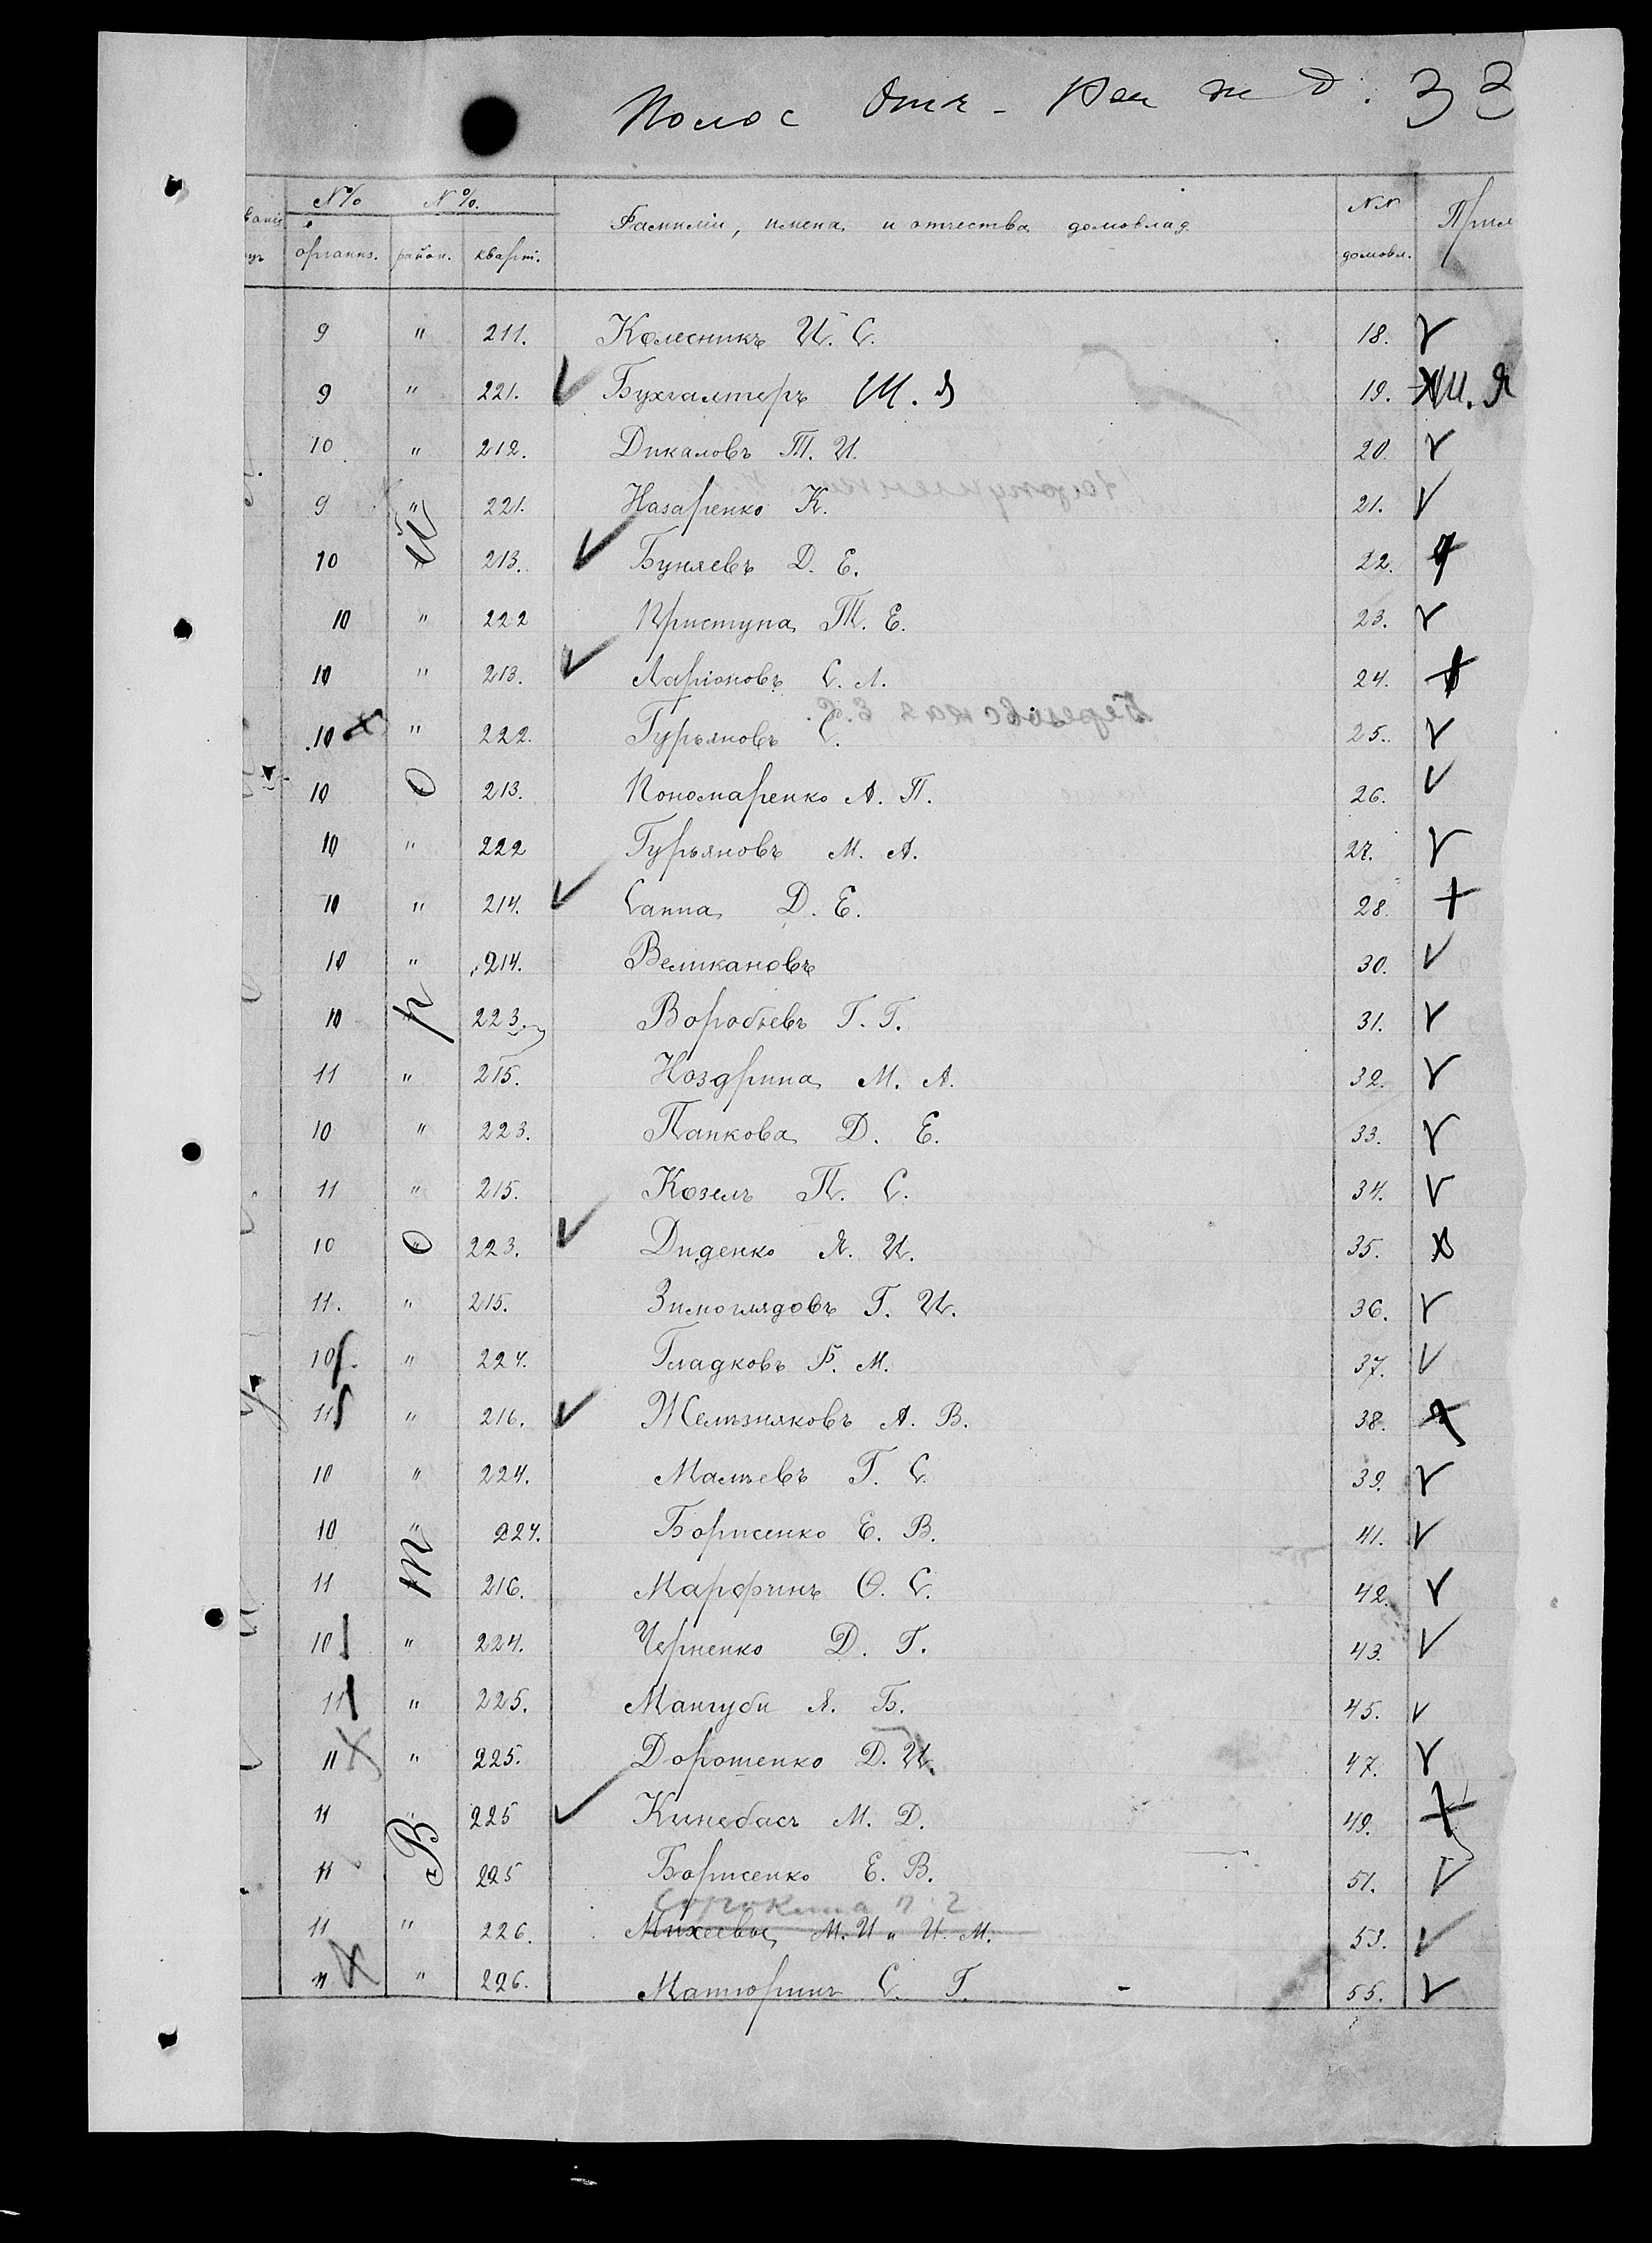 Полос Отч - Рен ж д. 33
№% №%.
вание Фамилiи, имена и отчества домовлад. №№ Прим
организ. район. кварт. домовл.
9 " 211. Колесникъ И. С. 18. V
9 " 221. V Бухгалтеръ Ш. Я 19. Ш. Я
10 " 212. Дикаловъ Т. И. 20. V
9 " 221. Назаренко К. 21. V
10 " 213. V Буняевъ Д. Е. 22.
10 " 222 Приступа Т. Е. 23. V
10 " 213. V Ларiоновъ С. Л. 24. +
10 x " 222. Гурьяновъ С. 25. V
10 " 213. Пономаренко А. П. 26. V
10 " 222 Гурьяновъ М. А. 27. V
10 " 214. V Саппа Д. Е. 28. +
10 " 214. Великановъ 30. V
10 " 223. Воробьевъ Г. Г. 31. V
11 " 215. Ноздрина М. А. 32. V
10 " 223. Папкова Д. Е. 33. V
11 " 215. Козелъ П. С. 34. V
10 " 223. V Диденко Я. И. 35. x
11. " 215. Зимоглядовъ Г. И. 36. V
10 " 224. Гладковъ Г. М. 37. V
11 " 216. V Желѣзняковъ А. В. 38. x
10 " 224. Малѣевъ Г. С. 39. V
10 " 224. Борисенко Е. В. 41. V
11 216. Марфинъ Ѳ. С. 42. V
10 " 224. Черненко Д. Г. 43. V
11 " 225. Мангуби Я. Б. 45. V
11 x " 225. Дорошенко Д. И. 47. V
11 225 V Кинебасъ М. Д. 49. +
11 225 Борисенко Е. В. 51. V
Сорокина П. Г.
11 " 226. Михеевы М. И и И. М. 53. V
11 x " 226. Матюринъ С. Г. - 55. V
Второй